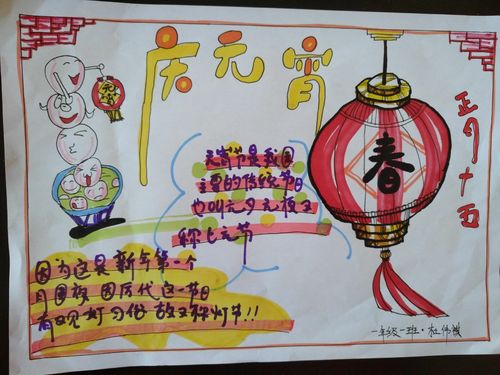 庆元宵
正月十五
春
元宵节是我国
主要的传统节日
也叫元夕元夜又
称上元节
因为这是新年第一个
月圆夜因历代这一节日
有观灯习俗故又称灯节!!
一年级一班·杜伟